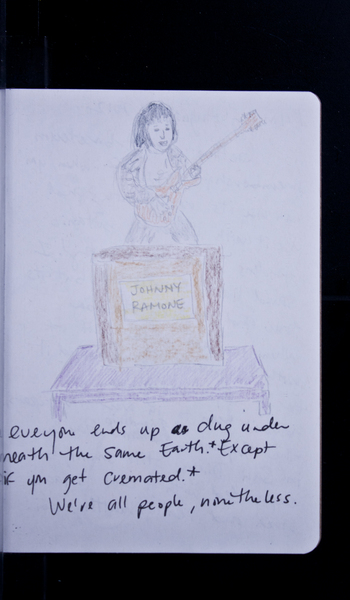 JOHNNY
RAMONE
everyone ends up as dug under
neath the same Earth.* Except
if you get cremated.*
We're all people, nonetheless.